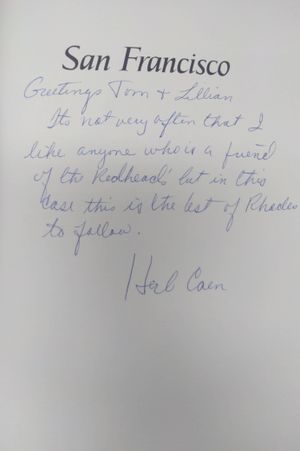 San Francisco
Greetings Tom + Lillian
Its not very often that I
like anyone who is a friend
of the Redheads' but in this
case this is the best of Rhodes
to follow.
Herb Caen